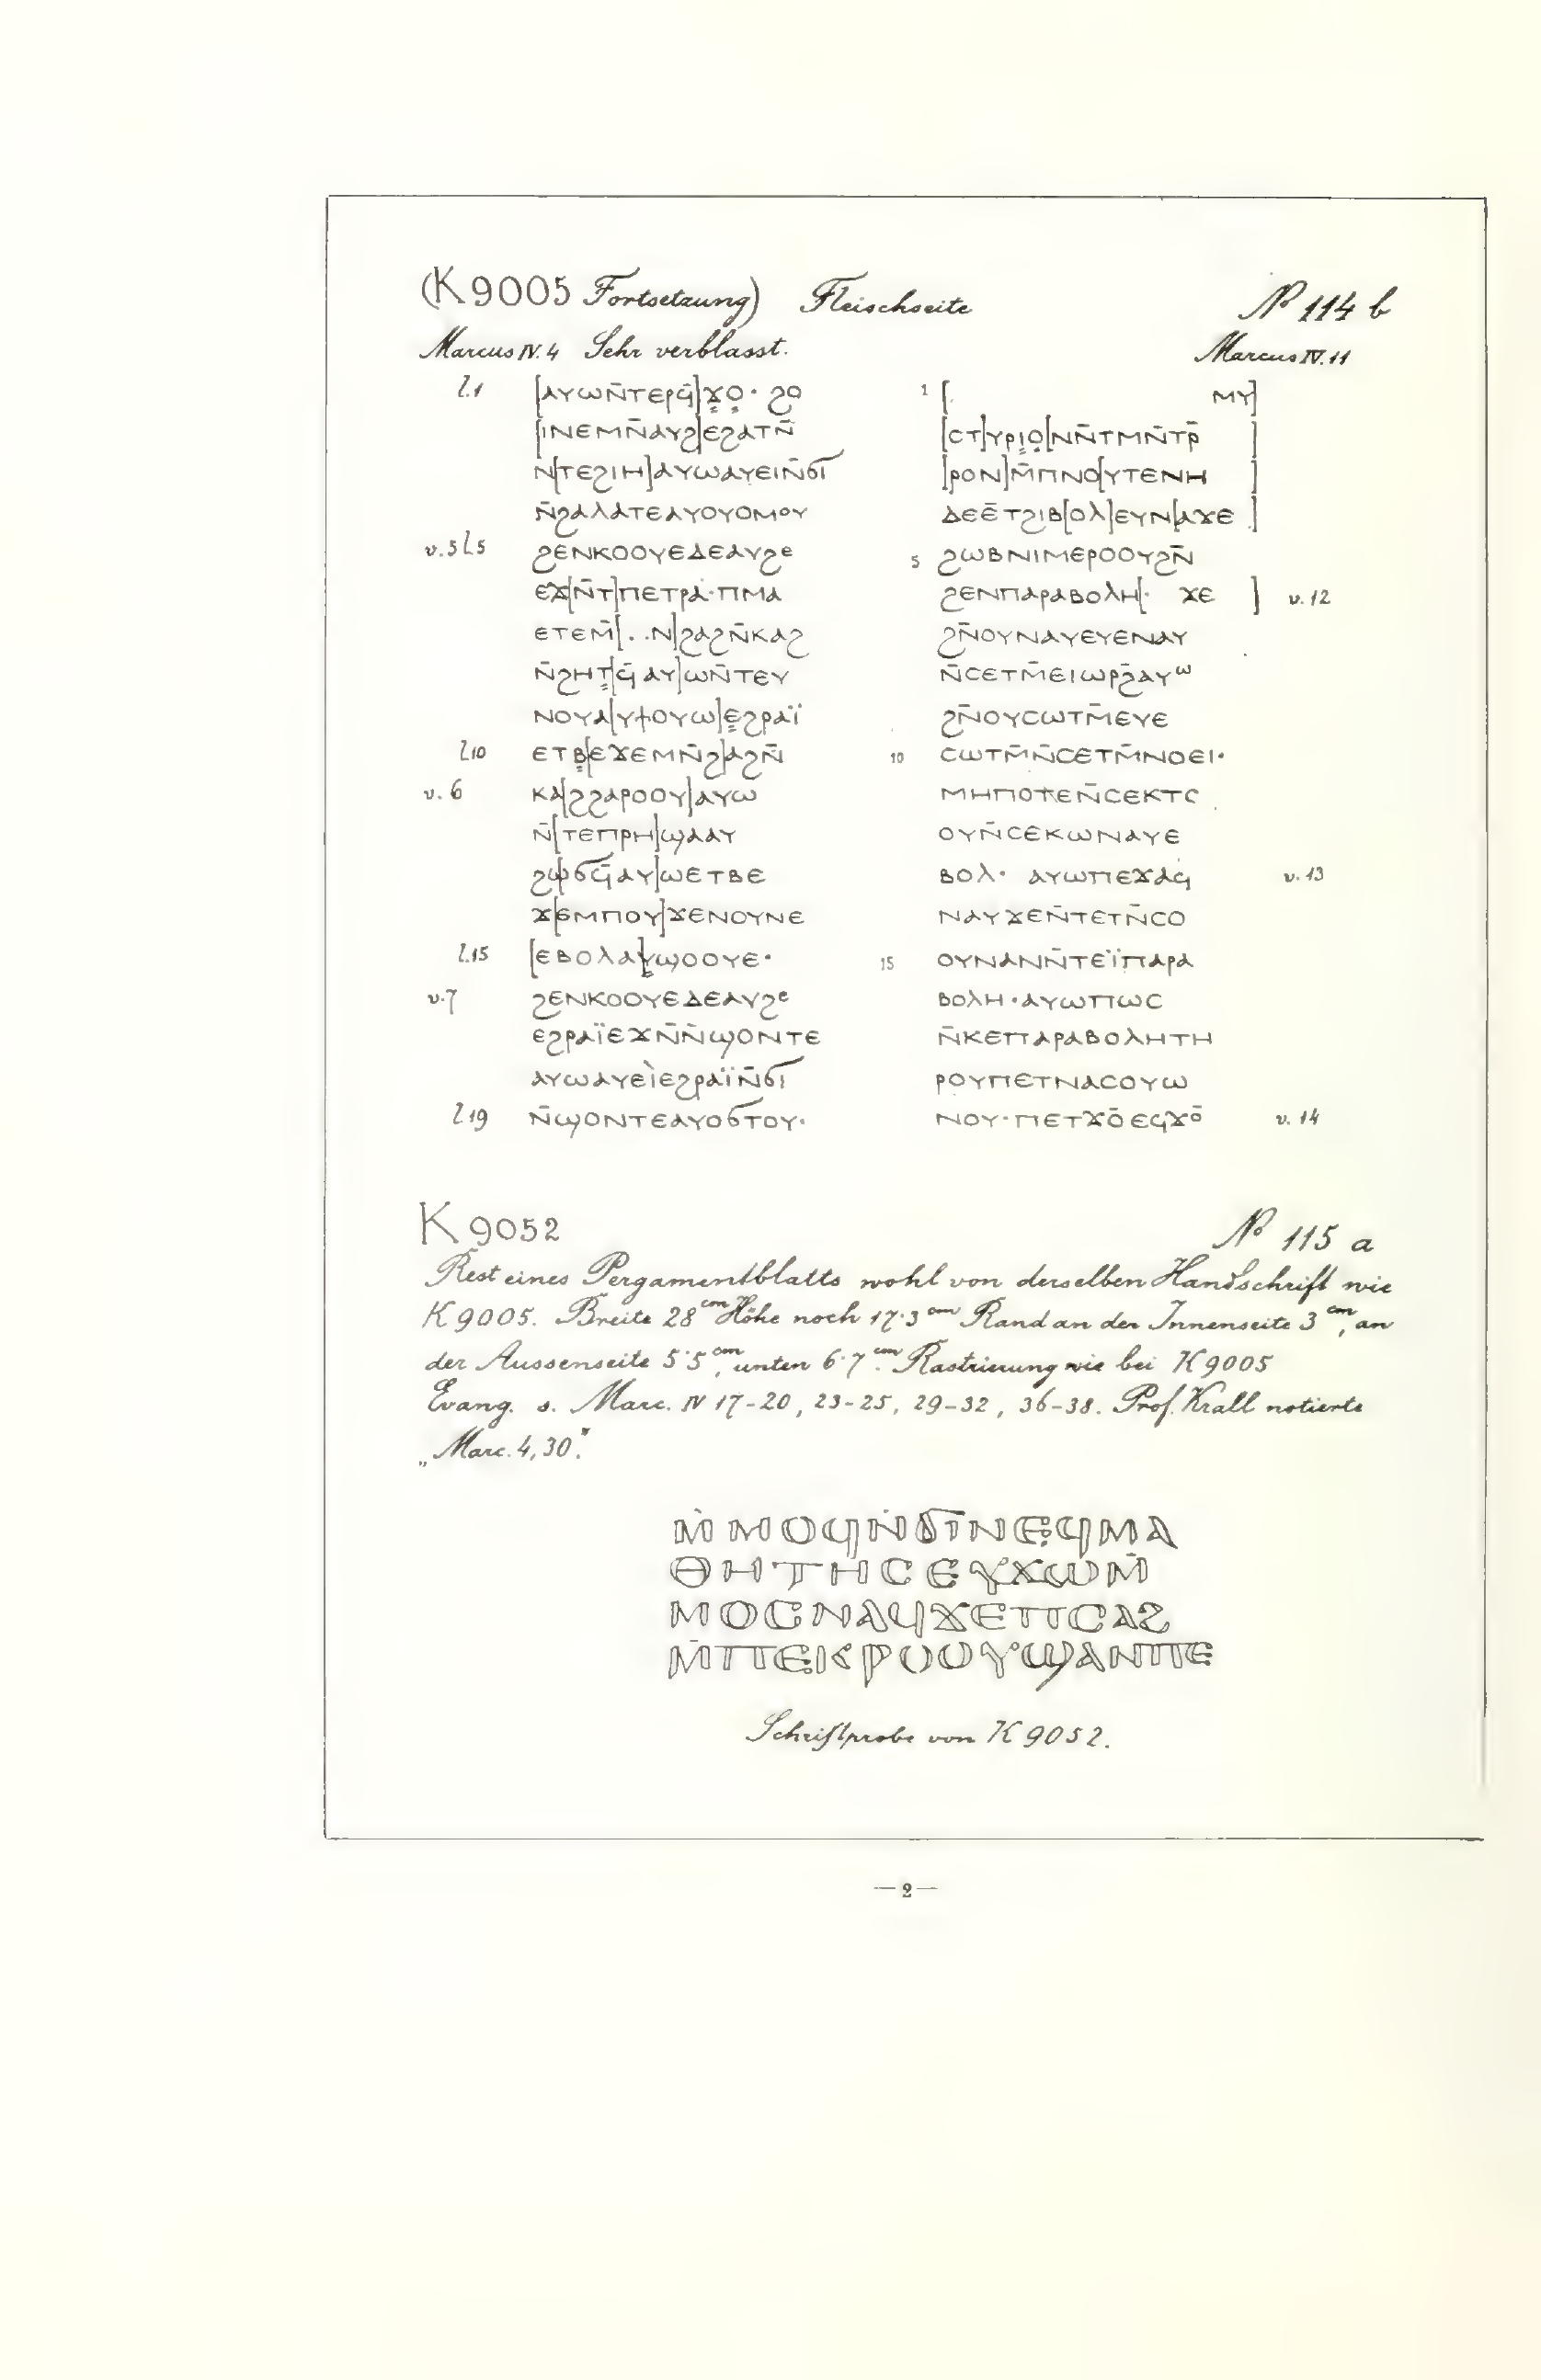 (K 9005 Fortsetzung) Fleischseite № 114 b
Marcus IV. 4 Sehr verblasst. Marcus IV. 11
l.1 [ⲁⲩⲱⲛ̄ⲧⲉⲣϥ̄]ϫ̣ⲟ̣· ϩⲟ
[ⲓⲛⲉⲙⲛ̄ⲁⲩϩ]ⲉϩⲁⲧⲛ̄
ⲛ̄[ⲧⲉϩⲓⲏ]ⲁⲩⲱⲁⲩⲉⲓⲛ̄ϭⲓ
ⲛ̄ϩⲁⲗⲁⲧⲉⲁⲩⲟⲩⲟⲙⲟⲩ
v. 5 l.5 ϩⲉⲛⲕⲟⲟⲩⲉⲇⲉⲁⲩϩⲉ
ⲉϫ[ⲛ̄ⲧ]ⲡⲉⲧⲣⲁ·ⲡⲙⲁ
ⲉⲧⲉⲙ̄[. .ⲛ]ϩⲁϩⲛ̄ⲕⲁϩ
ⲛ̄ϩⲏⲧ̣[ϥ̄ ⲁⲩ]ⲱⲛ̄ⲧⲉⲩ
ⲛⲟⲩⲁ[ⲩϯⲟⲩⲱ]ⲉ̣ϩⲣⲁⲓ̈
l.10 ⲉⲧⲃ̣[ⲉϫⲉⲙⲛ̄ϩ]ⲁϩⲛ̄
v. 6 ⲕⲁ[ϩϩⲁⲣⲟⲟⲩ]ⲁⲩⲱ
ⲛ̄[ⲧⲉⲡⲣⲏ]ϣⲁⲁⲩ
ϩⲱ[ϭϥ̄ⲁⲩ]ⲱⲉⲧⲃⲉ
ϫ[ⲉⲙⲡⲟⲩ]ϫⲉⲛⲟⲩⲛⲉ
l.15 [ⲉⲃⲟⲗⲁ]ⲩ̣ϣⲟⲟⲩⲉ·
v. 7 ϩⲉⲛⲕⲟⲟⲩⲉⲇⲉⲁⲩϩⲉ
ⲉϩⲣⲁⲓ̈ⲉϫⲛ̄ⲛ̄ϣⲟⲛⲧⲉ
ⲁⲩⲱⲁⲩⲉⲓ̀ⲉϩⲣⲁⲓ̈ⲛ̄ϭⲓ
l.19 ⲛ̄ϣⲟⲛⲧⲉⲁⲩⲟϭⲧⲟⲩ·
1 [. ⲙⲩ]
[ⲥⲧ]ⲩⲣⲓ̣ⲟ̣[ⲛⲛ̄ⲧⲙⲛ̄ⲧⲣ̄ ]
[ⲣⲟⲛ]ⲙ̄ⲡⲛⲟ[ⲩⲧⲉⲛⲏ ]
ⲇⲉⲉ̄ⲧϩⲓⲃ[ⲟⲗ]ⲉⲩⲛ[ⲁϫⲉ ]
5 ϩⲱⲃⲛⲓⲙⲉⲣⲟⲟⲩϩⲛ̄
ϩⲉⲛⲡⲁⲣⲁⲃⲟⲗⲏ[· ϫⲉ ] v. 12
ϩⲛ̄ⲟⲩⲛⲁⲩⲉⲩⲉⲛⲁⲩ
ⲛ̄ⲥⲉⲧⲙ̄ⲉⲓⲱⲣϩ̄ⲁⲩⲱ
ϩⲛ̄ⲟⲩⲥⲱⲧⲙ̄ⲉⲩⲉ
10 ⲥⲱⲧⲙ̄ⲛ̄ⲥⲉⲧⲙ̄ⲛⲟⲉⲓ·
ⲙⲏⲡⲟⲧⲉⲛ̄ⲥⲉⲕⲧⲥ
ⲟⲩⲛ̄ⲥⲉⲕⲱⲛⲁⲩⲉ
ⲃⲟⲗ· ⲁⲩⲱⲡⲉϫⲁϥ v. 13
ⲛⲁⲩϫⲉⲛ̄ⲧⲉⲧⲛ̄ⲥⲟ
15 ⲟⲩⲛⲁⲛⲛ̄ⲧⲉⲓ̈ⲡⲁⲣⲁ
ⲃⲟⲗⲏ·ⲁⲩⲱⲡⲱⲥ
ⲛ̄ⲕⲉⲡⲁⲣⲁⲃⲟⲗⲏⲧⲏ
ⲣⲟⲩⲡⲉⲧⲛⲁⲥⲟⲩⲱ
ⲛⲟⲩ·ⲡⲉⲧϫⲟ̄ⲉϥϫⲟ̄ v. 14
K 9052 № 115 a
Rest eines Pergamentblatts wohl von derselben Handschrift wie
K 9005. Breite 28 cm Höhe noch 17·3 cm Rand an der Innenseite 3 cm, an
der Aussenseite 5·5 cm, unten 6·7 cm. Rastrierung wie bei K 9005
Evang. s. Marc. IV 17-20, 23-25, 29-32, 36-38. Prof. Krall notierte
„Marc. 4, 30."
ⲙ̀ⲙⲟϥⲛ̇ϭⲓⲛⲉϥⲙⲁ
ⲑⲏⲧⲏⲥⲉⲩϫⲱⲙ̄
ⲙⲟⲥⲛⲁϥϫⲉⲡⲥⲁϩ
ⲙ̄ⲡⲉⲕⲣⲟⲟⲩϣⲁⲛⲡⲉ
Schriftprobe von K 9052.
— 2 —